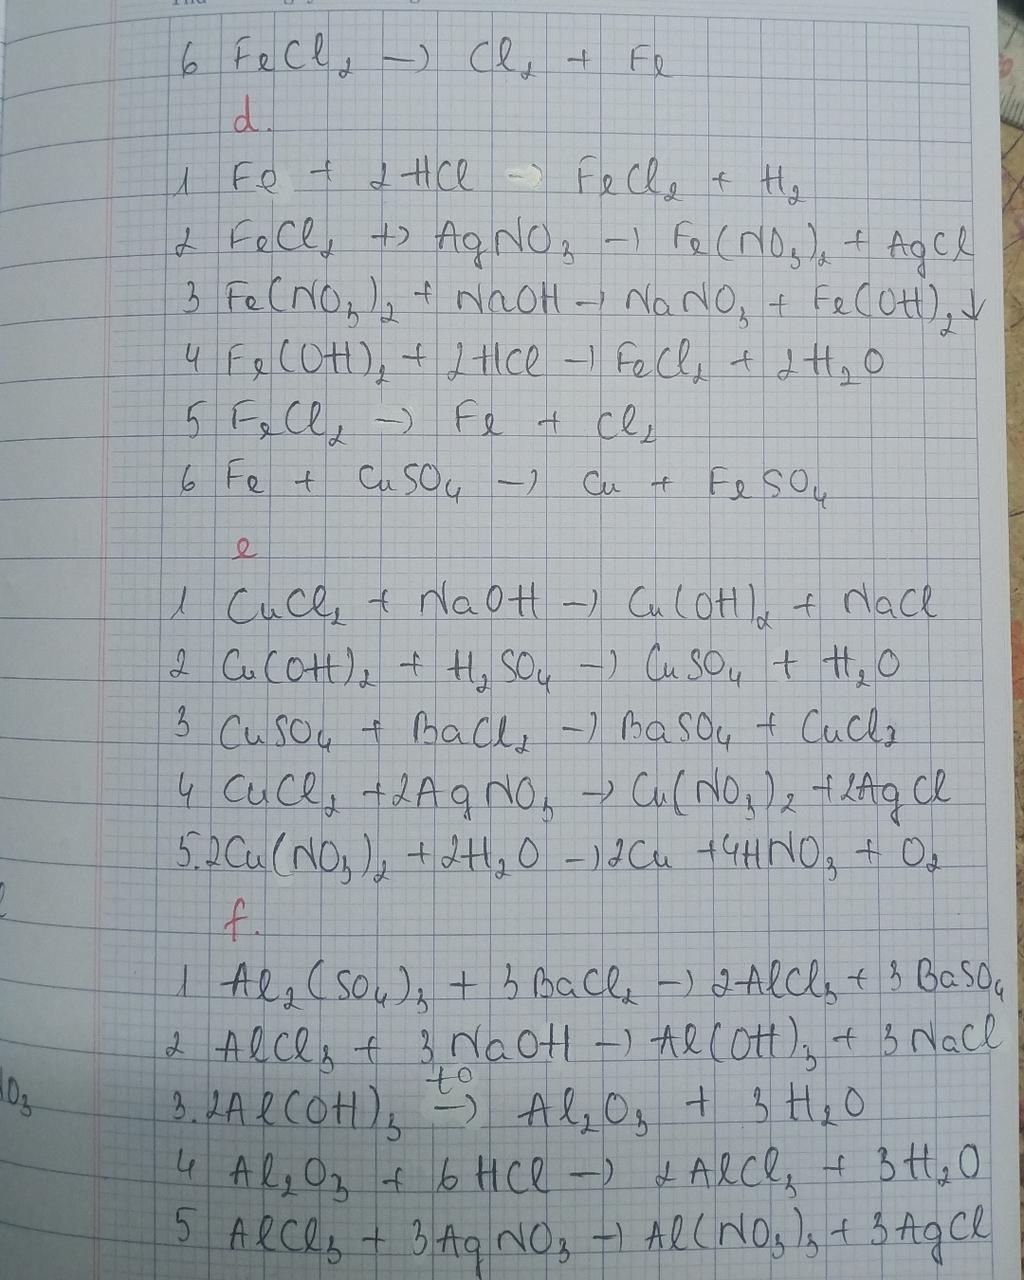 6 FeCl₂ → Cl₂ + Fe
d.
1 Fe + 2HCl → FeCl₂ + H₂
2 FeCl₂ +> AgNO₃ → Fe(NO₃)₂ + AgCl
3 Fe(NO₃)₂ + NaOH → NaNO₃ + Fe(OH)₂↓
4 Fe(OH)₂ + 2HCl → FeCl₂ + 2H₂O
5 FeCl₂ → Fe + Cl₂
6 Fe + CuSO₄ → Cu + FeSO₄
e
1 CuCl₂ + NaOH → Cu(OH)₂ + NaCl
2 Cu(OH)₂ + H₂SO₄ → CuSO₄ + H₂O
3 CuSO₄ + BaCl₂ → BaSO₄ + CuCl₂
4 CuCl₂ + 2AgNO₃ → Cu(NO₃)₂ + 2AgCl
5. 2Cu(NO₃)₂ + 2H₂O → 2Cu + 4HNO₃ + O₂
f.
1 Al₂(SO₄)₃ + 3BaCl₂ → 2AlCl₃ + 3BaSO₄
2 AlCl₃ + 3NaOH → Al(OH)₃ + 3NaCl
3. 2Al(OH)₃ t⁰→ Al₂O₃ + 3H₂O
4 Al₂O₃ + 6HCl → 2AlCl₃ + 3H₂O
5 AlCl₃ + 3AgNO₃ → Al(NO₃)₃ + 3AgCl